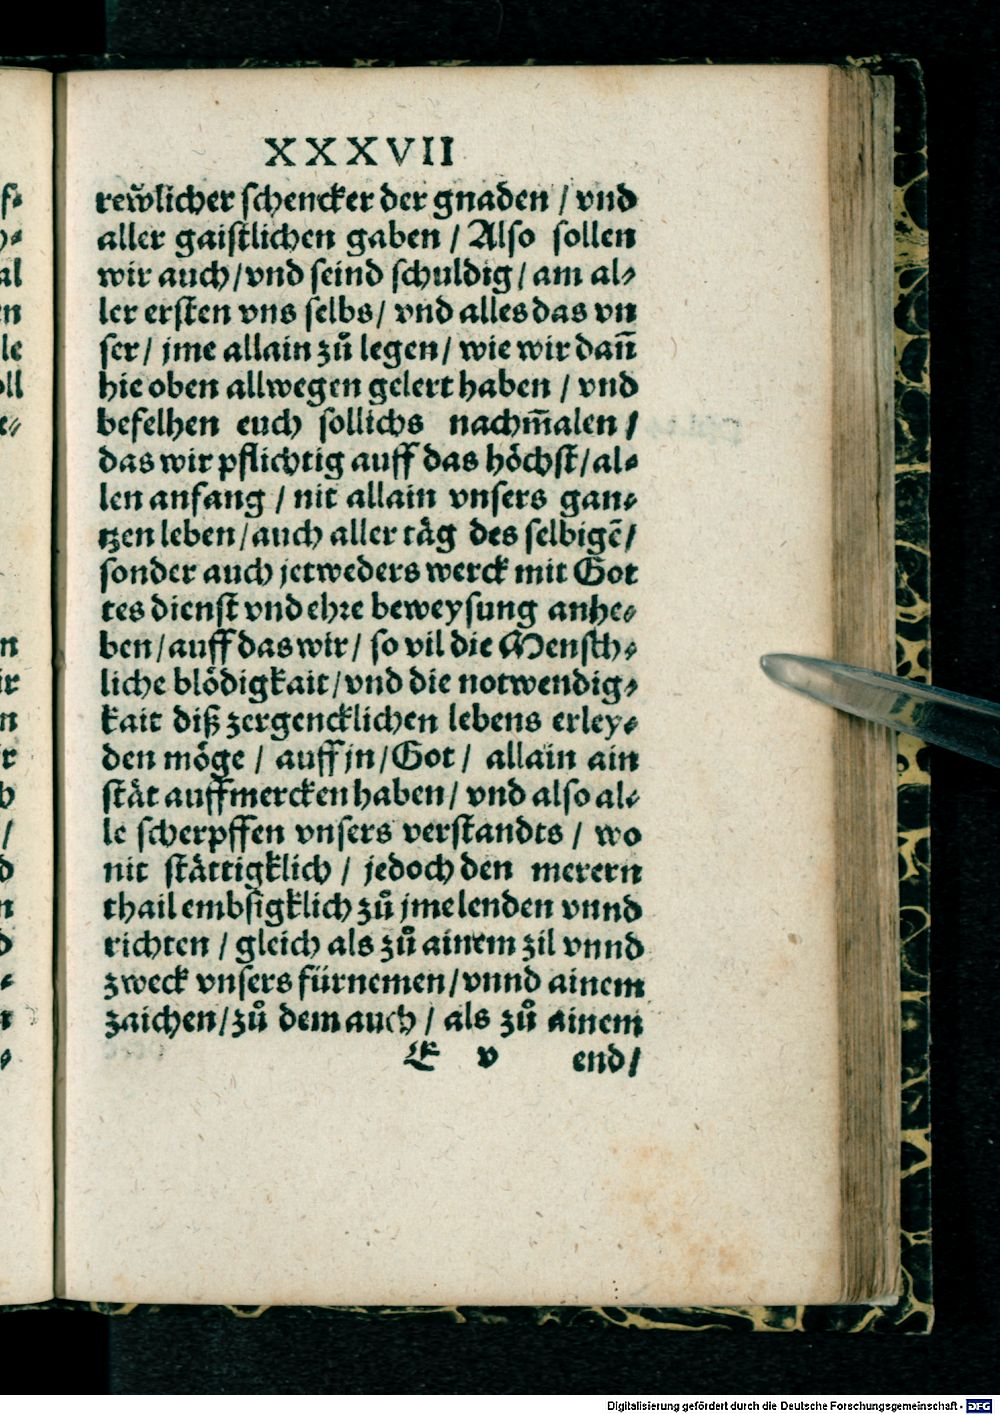 XXXVII
rew̃licher schencker der gnaden / vnd
aller gaistlichen gaben / Also sollen
wir auch / vnd seind schuldig / am al⸗
ler ersten vns selbs / vnd alles das vn
ser / jme allain zů legen / wie wir dañ
hie oben allwegen gelert haben / vnd
befelhen euch sollichs nachm̃alen /
das wir pflichtig auff das höchst / al⸗
len anfang / nit allain vnsers gan⸗
tzen leben / auch aller täg des selbigẽ /
sonder auch jetweders werck mit Got
tes dienst vnd ehre beweysung anhe⸗
ben / auff das wir / so vil die Mensch⸗
liche blödigkait / vnd die notwendig⸗
kait diß zergencklichen lebens erley⸗
den möge / auff jn / Got / allain ain
stät auffmercken haben / vnd also al⸗
le scherpffen vnsers verstandts / wo
nit stättigklich / jedoch den merern
thail embsigklich zů jme lenden vnnd
richten / gleich als zů ainem zil vnnd
zweck vnsers fürnemen / vnnd ainem
zaichen / zů dem auch / als zů ainem
E v end /
Digitalisierung gefördert durch die Deutsche Forschungsgemeinschaft - DFG